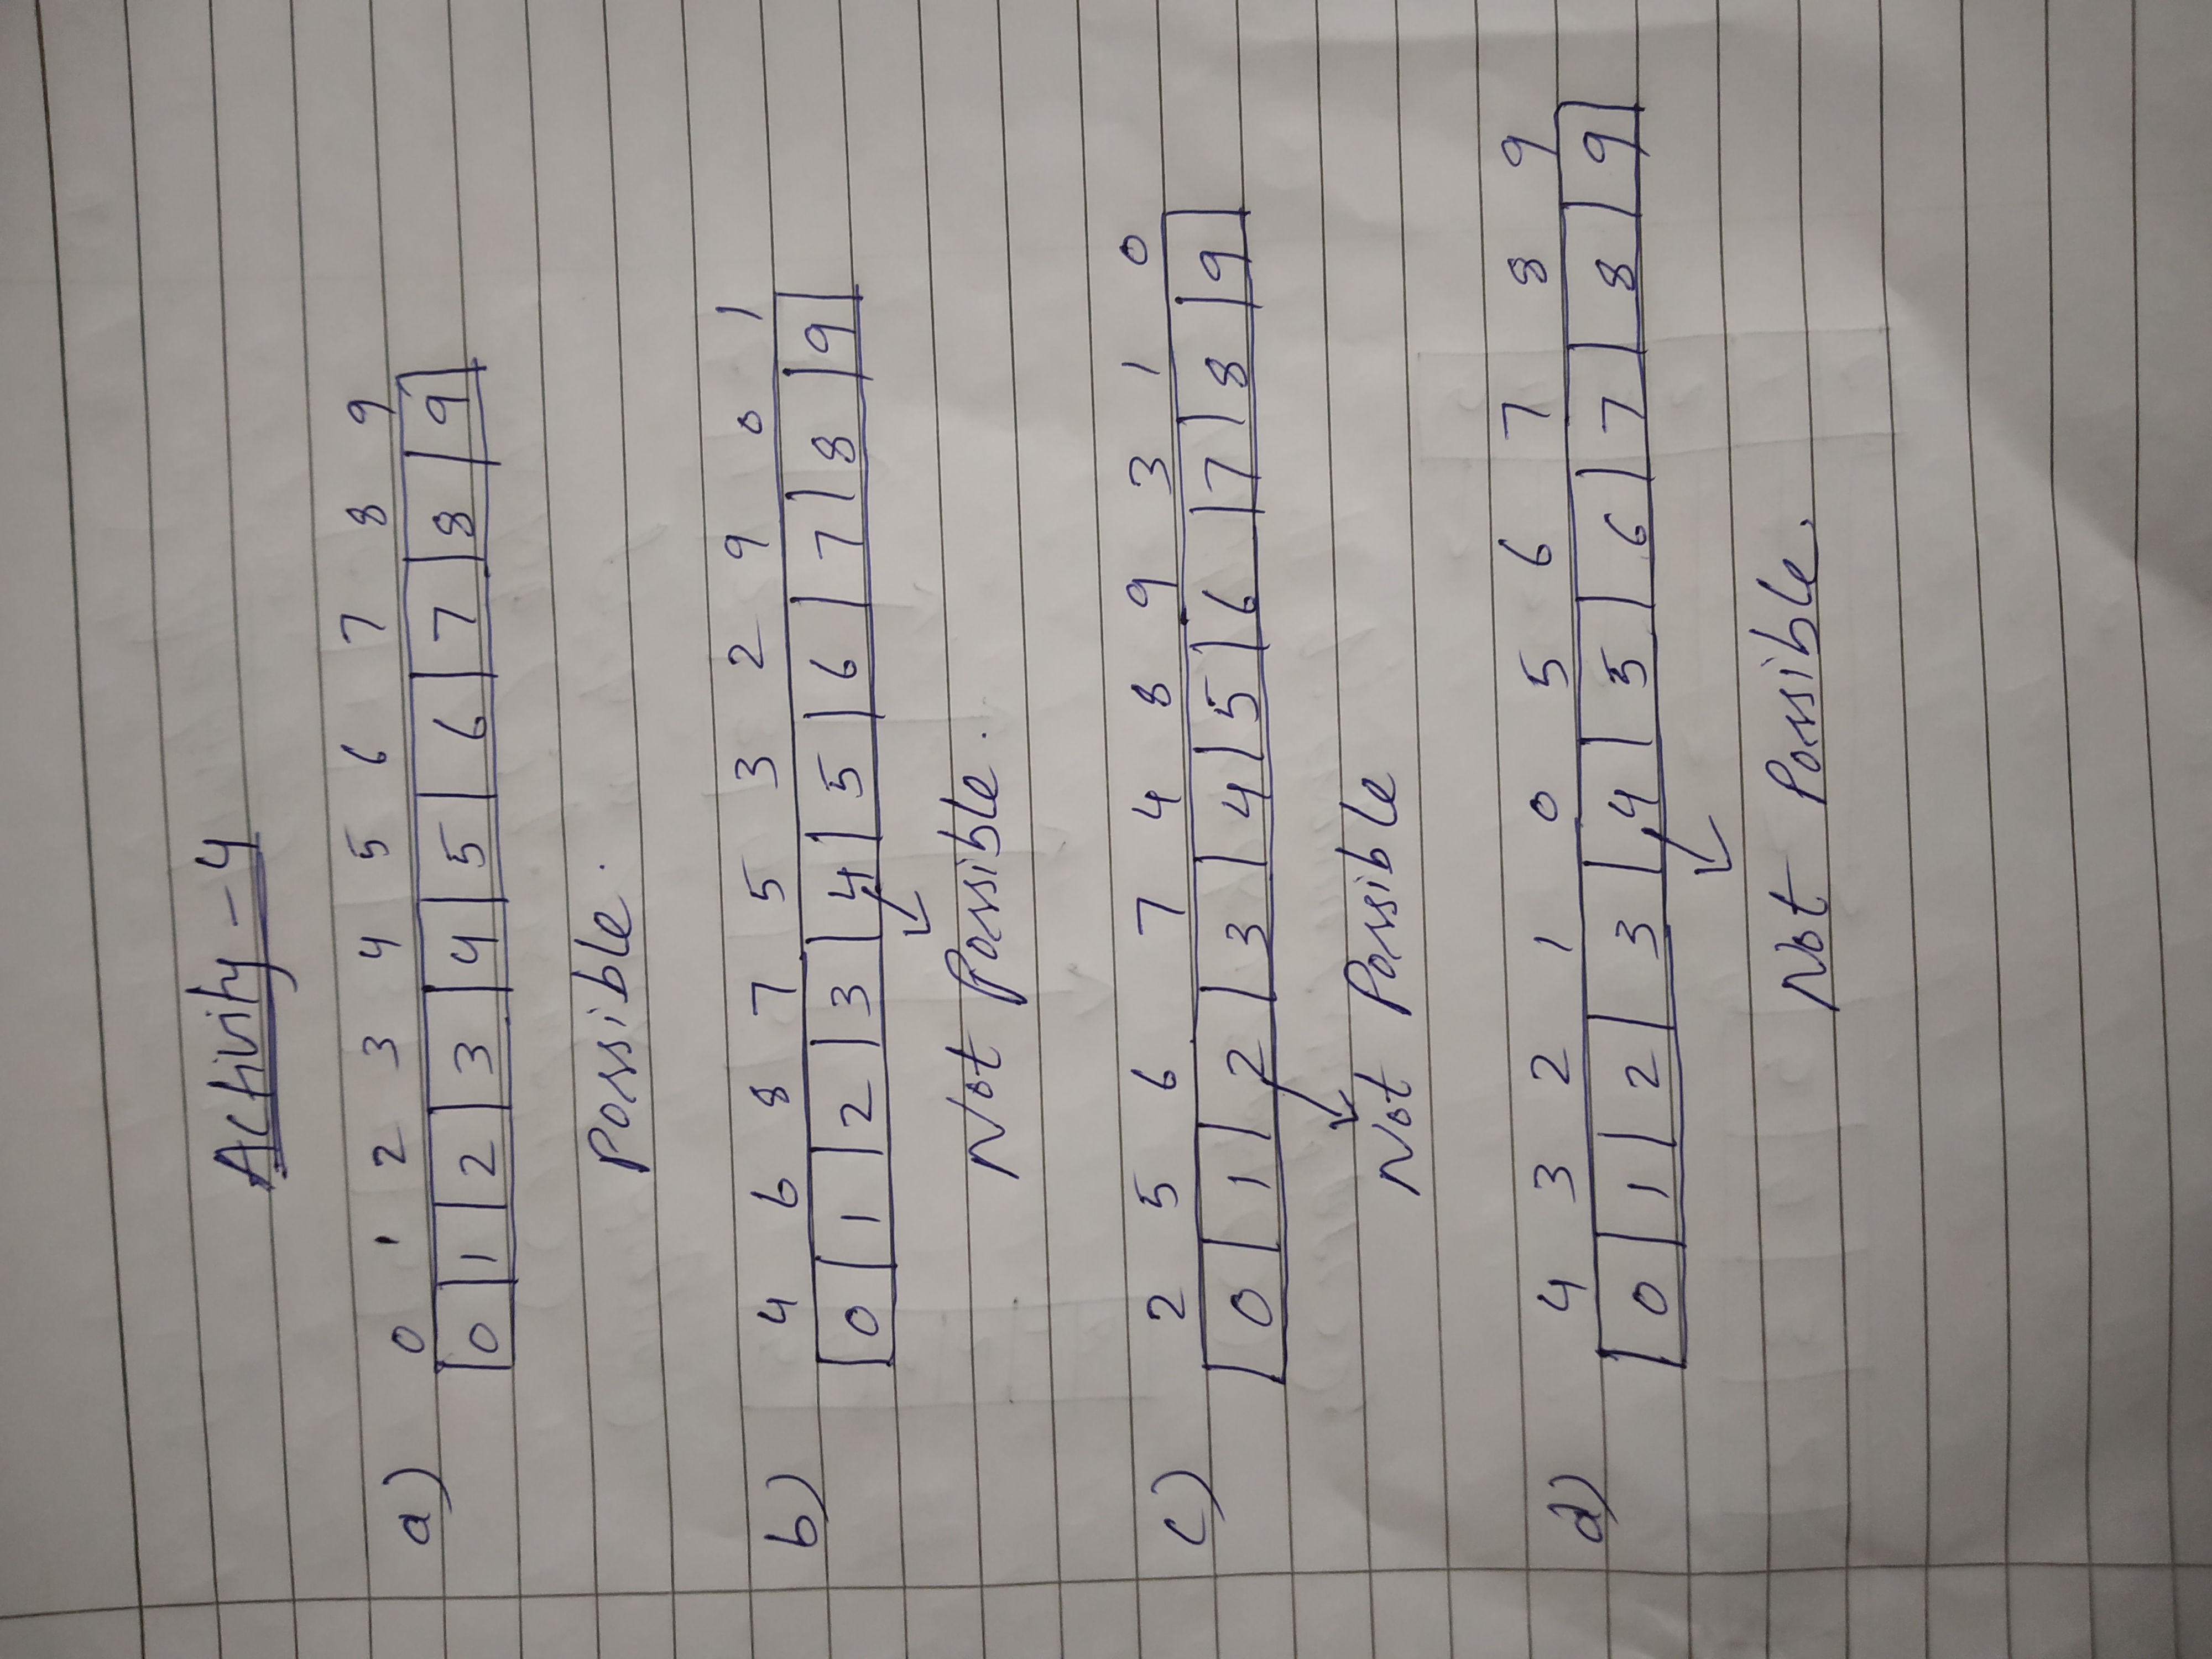 Activity - 4
a) 0 1 2 3 4 5 6 7 8 9
0 1 2 3 4 5 6 7 8 9
Possible.
b) 4 6 8 7 5 3 2 9 0 1
0 1 2 3 4 5 6 7 8 9
Not Possible.
c) 2 5 6 7 4 8 9 3 1 0
0 1 2 3 4 5 6 7 8 9
Not Possible
d) 4 3 2 1 0 5 6 7 8 9
0 1 2 3 4 5 6 7 8 9
Not Possible.